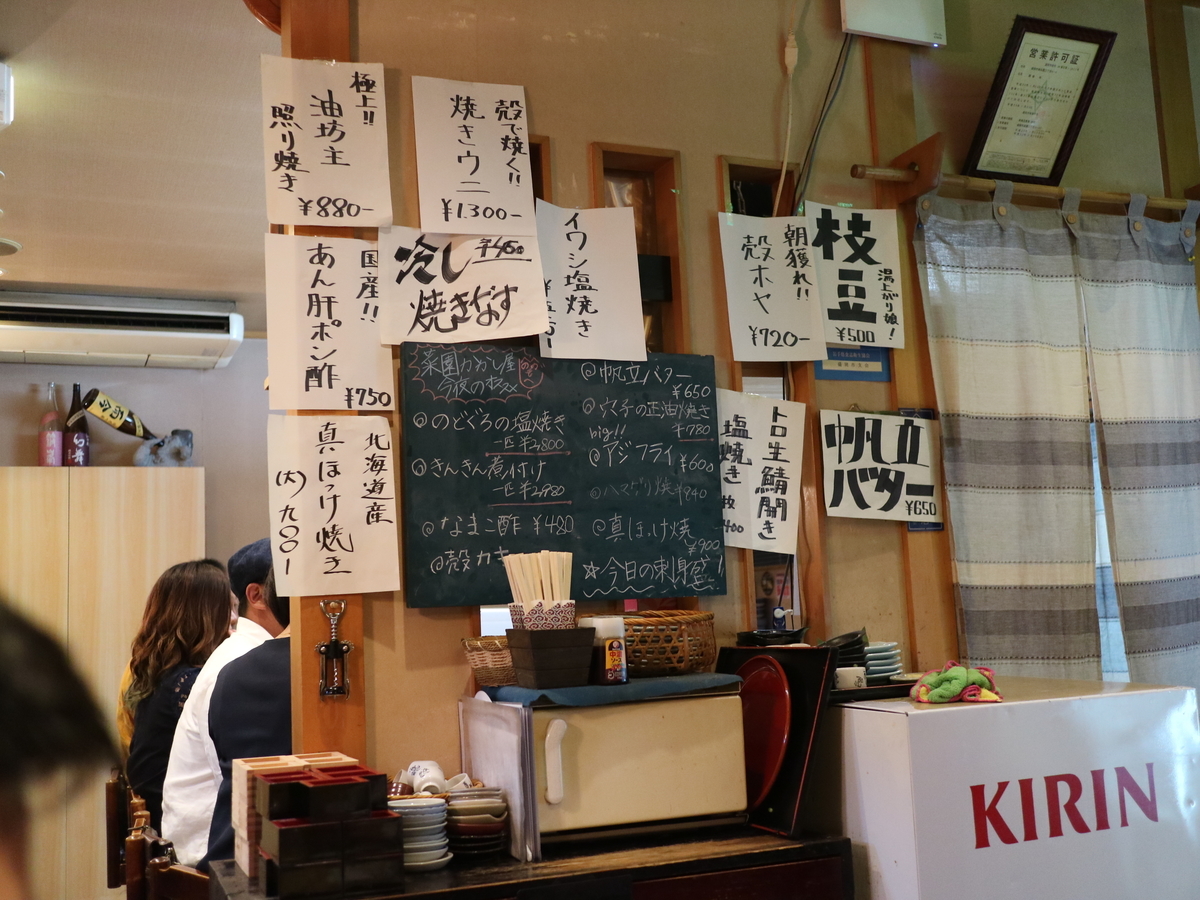 極上!!
油坊主
照り焼き
¥880-
殻で焼く!!
焼きウニ
¥1.300-
国産!!
あん肝ポン酢
¥750
冷し
焼きなす
イワシ塩焼き
朝獲れ!!
殻ホヤ
¥720-
枝豆
湯上がり娘!
¥500
営業許可証
北海道産
真ほっけ焼き
(大)九〇〇1
今夜の
@のどぐろの塩焼き
一匹¥2,800
@きんきん煮付け
一匹¥2,980
@なまこ酢 ¥480
@殻カキ
@帆立バター
¥650
@穴子の正油焼き
¥780
big!!
@アジフライ ¥600
¥940
@真ほっけ焼
¥900
☆今日の刺身盛!
トロ生鯖開き
塩焼き
帆立
バター
¥650
KIRIN